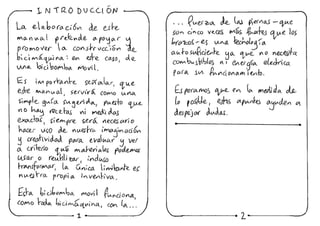 INTRODUCCIÓN
La elaboración de este
manual pretende apoyar y
promover la construcción de
bicimáquina: en este caso, de
una bicibomba movil.
Es importante señalar, que
este manual, servirá como una
simple guía sugerida, puesto que
no hay recetas ni medidas
exactas, siempre será necesario
hacer uso de nuestra imaginación
y creatividad para evaluar y ver
a criterio qué materiales podemos
usar o reutilizar, incluso
transformar, la única limitante es
nuestra propia inventiva.
Esta bicibomba movil funciona,
como toda bicimáquina, con la...
1
... fuerza de las piernas - que
son cinco veces más fuertes que los
brazos - es una tecnología
autosuficiente ya que no necesita
combustibles ni energía eléctrica
para su funcionamiento.
Esperamos que en la medida de
lo posible, estos apuntes ayuden a
despejar dudas.
2